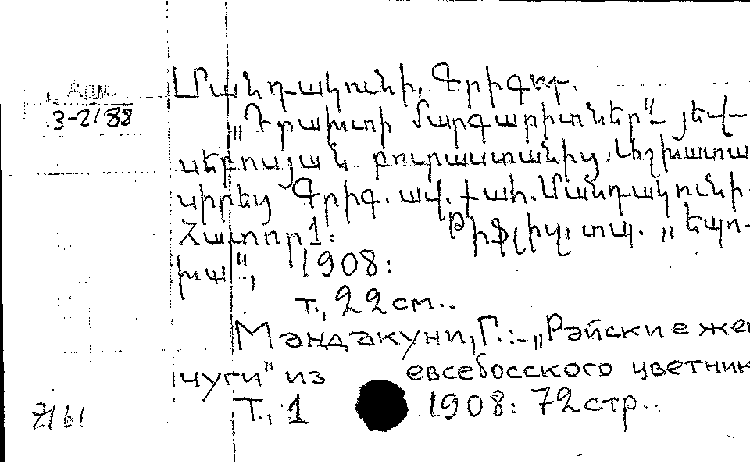 Մանդակունի, Գրիգոր.
3-2/88
„Դրախտի մարգարիտներ“ – յեվ-
սեբոսյան բուրաստանից. Աշխատա
սիրեց Գրիգ. ավ. քահ. Մանդակունի.
Հատոր 1: Թիֆլիս, տպ. „Եպո-
խա“, 1908:
т., 22 см..
Мандакуни, Г.:-„Райские жем
чуги" из евсебосского цветник
2161 Т., 1 1908: 72 стр..